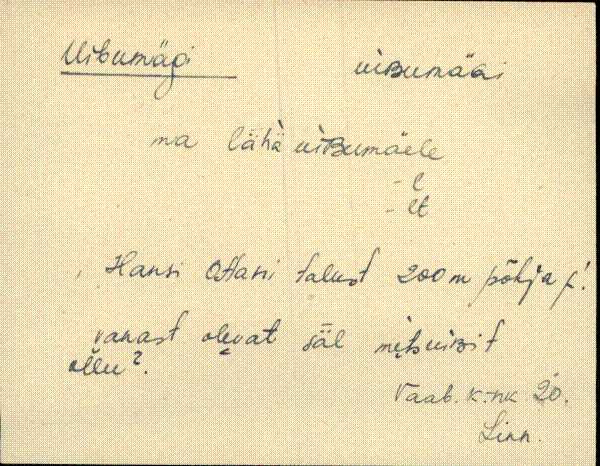 Uibumägi uiʙumäǵi
ma lähä̀ uiʙumäele
- l
- lt
Hansi Ottasi talust 200 m põhja p.
vanast olevat sääl
ollu?.
Vaab. k.-nk 20.
Linn.